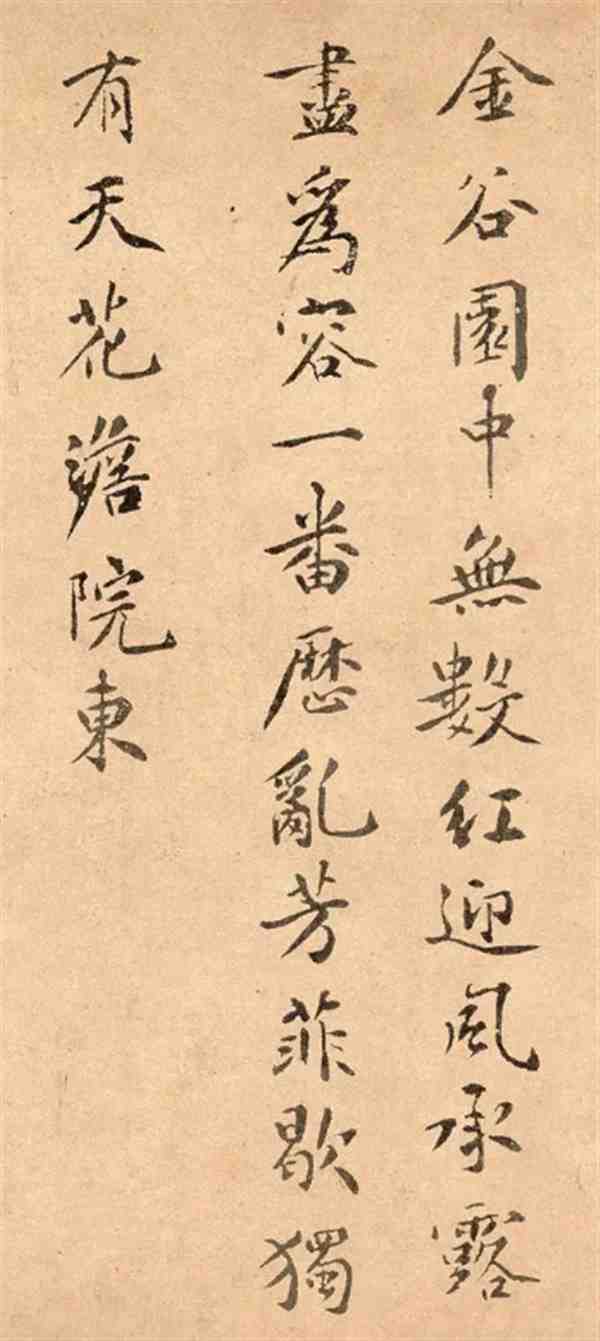 金谷園中無數紅迎風承露
盡爲容一番歷亂芳菲歇獨
有天花澹院東